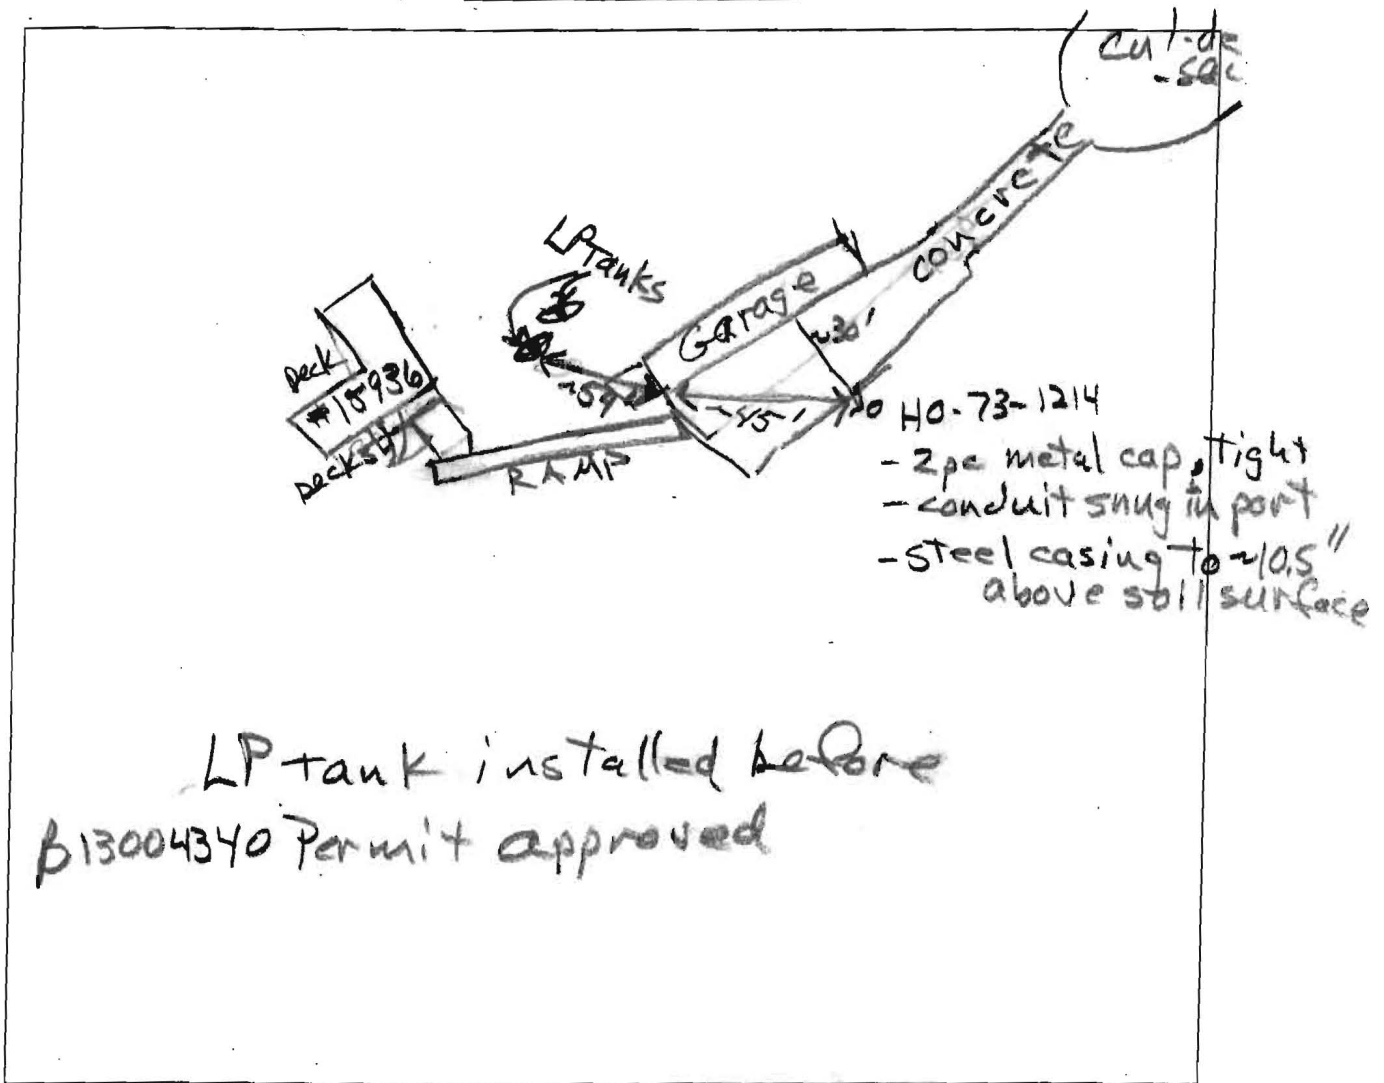 cul-de
-sac
concrete
LP
Tanks
Garage
~30'
Deck
#15936
~59'
~45'
Deck
RAMP
HO-73-1214
- 2pc metal cap, tight
- conduit snug in port
- steel casing to ~10.5"
above soil surface
LP tank installed before
B13004340 Permit approved